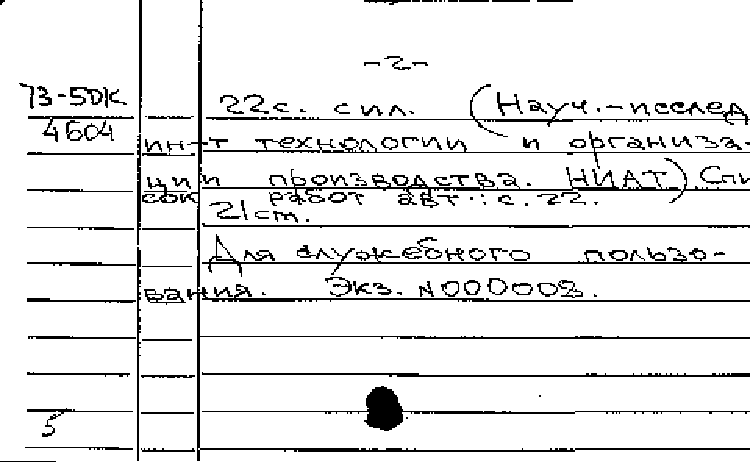 -2-
73-5DK
4604
22с. с ил. (Науч.-исслед
ин-т технологии и организа-
ции производства. НИАТ) Спи
сок работ авт.: с. 22.
21 ст.
Для служебного пользо-
вания. Экз. N000008.
5